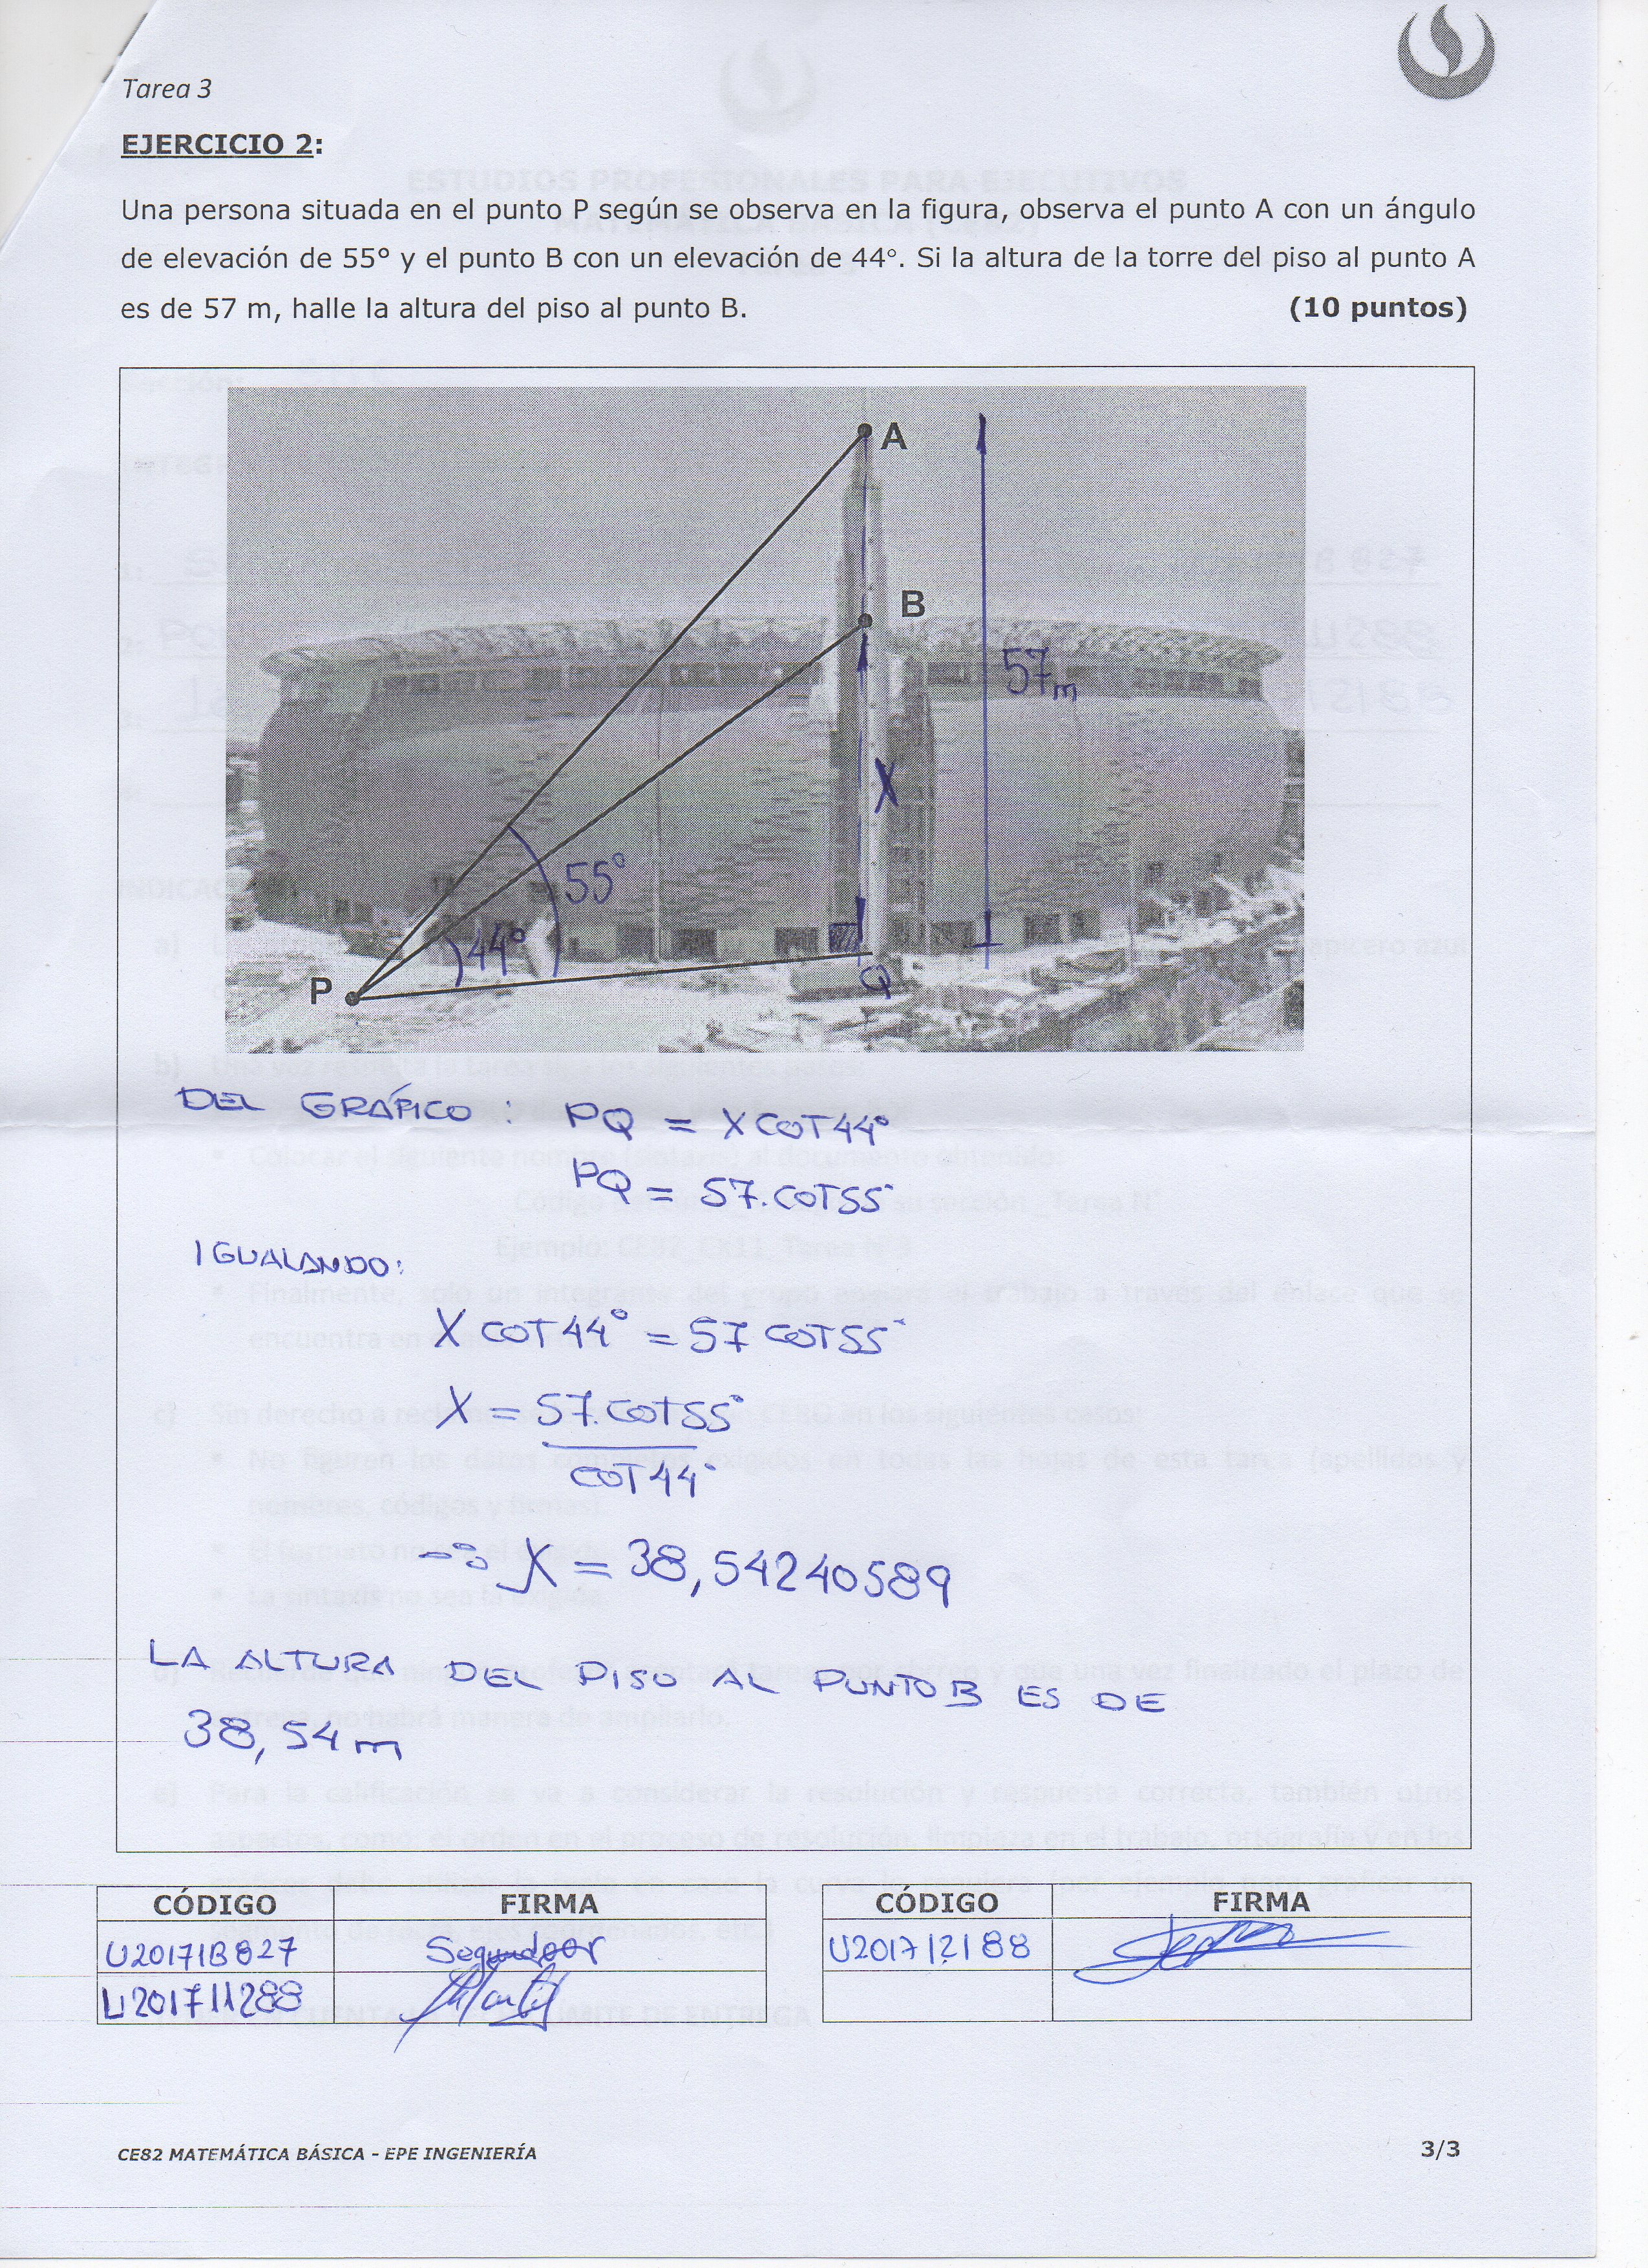 Tarea 3
EJERCICIO 2:
Una persona situada en el punto P según se observa en la figura, observa el punto A con un ángulo
de elevación de 55° y el punto B con un elevación de 44°. Si la altura de la torre del piso al punto A
es de 57 m, halle la altura del piso al punto B. (10 puntos)
A
B
57m
X
55°
44°
P
Q
DEL GRÁFICO: PQ = X COT44°
PQ = 57.COT55°
IGUALANDO:
X COT44° = 57 COT55°
X = 57.COT55°
COT44°
X = 38,54240589
LA ALTURA DEL PISO AL PUNTO B ES DE
38,54 m
CÓDIGO FIRMA CÓDIGO FIRMA
U20171B827 U201712188
U201711288
CE82 MATEMÁTICA BÁSICA - EPE INGENIERÍA 3/3